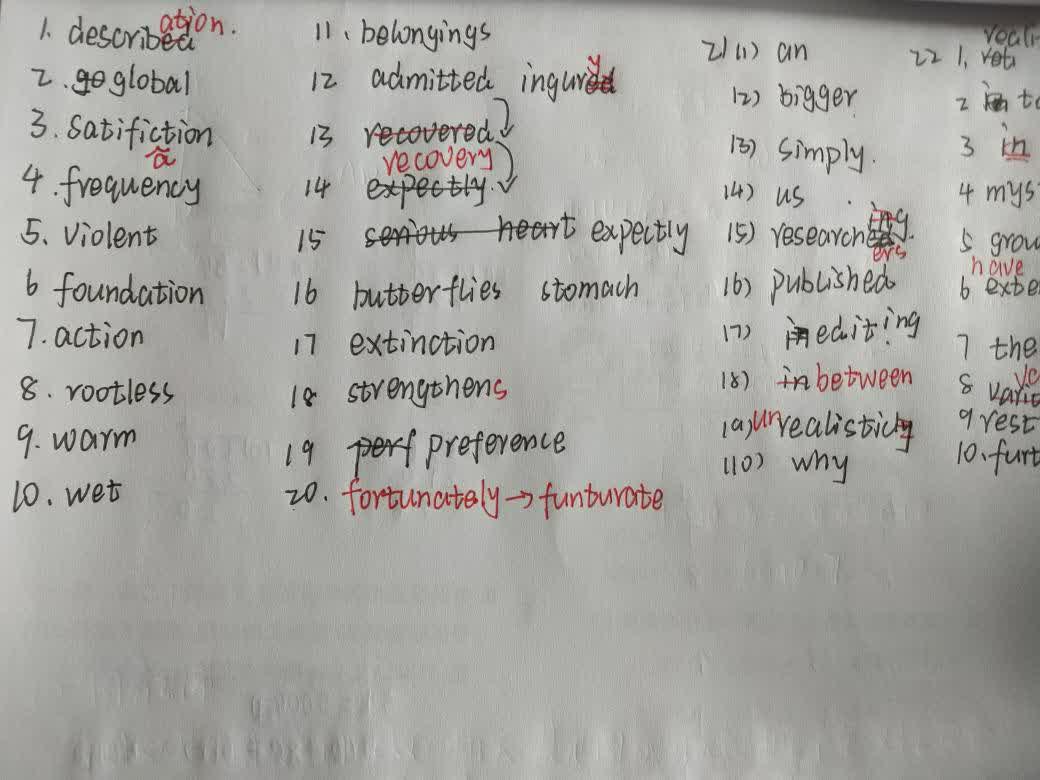 1. described ation.
2. go global
3. satifiction a
4. frequency
5. violent
6 foundation
7. action
8. rootless
9. warm
10. wet
11. belongings
12 admitted ingured y
13 recovered recovery
14 expectly
15 serious heart expectly
16 butterflies stomach
17 extinction
18 strengthens
19 perf preference
20. fortunately → funturate
21 (1) an
(2) bigger
(3) simply.
(4) us
(5) research ing ers
(6) published
(7) in editing
(8) in between
(9) unrealisticly
(10) why
22 1.
2 in
3 in
4 mys
5 grou
6 have exte
7 the
8
9 rest
10. furt